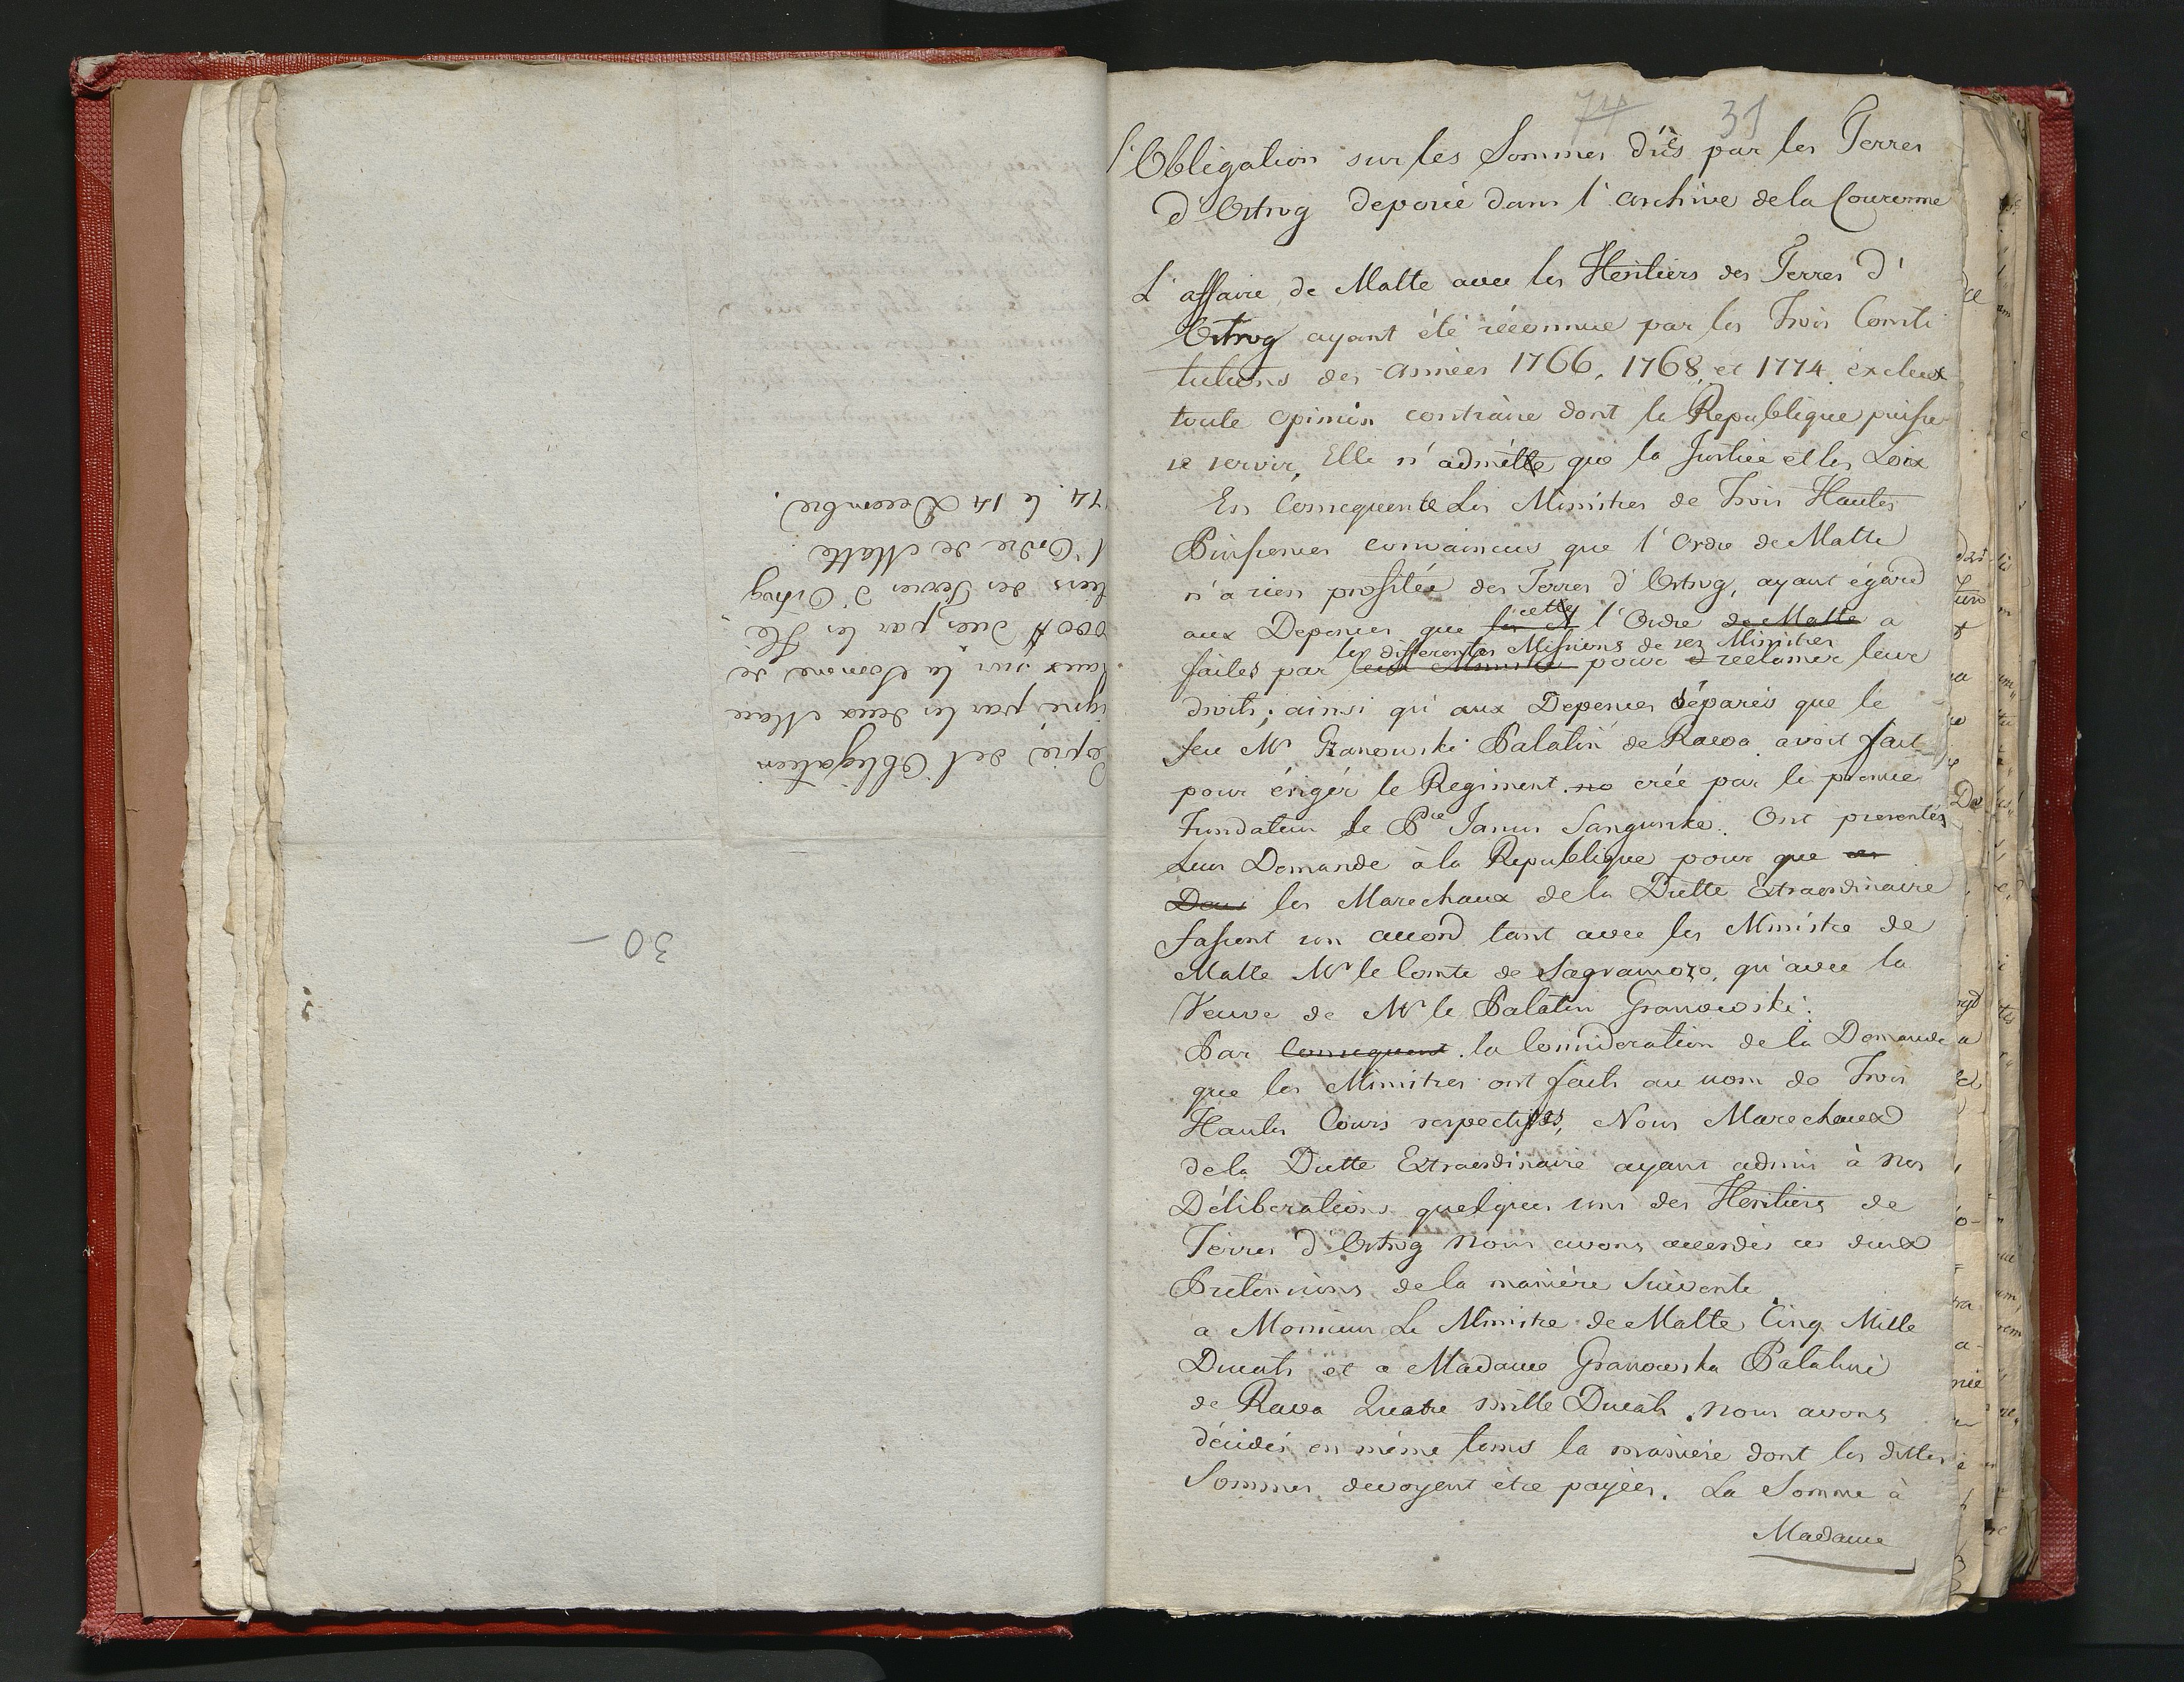 Copie de l'Obligation
signé par les deux Maré
chaux sur la Somme de
000 # dues par les Hé
tiers des Terres d'Ostrog
l'Ordre de Malte
74. le 14 Decembre.
30 –
74 31
l'Obligation sur les Sommes dûës par les Terres
d'Ostrog deposée dans l'archive de la Couronne
L'affaire de Malte avec les Heritiers des Terres d'
Ostrog ayant été réconnue par les Trois Consti
tutions des années 1766, 1768, et 1774. exclues
toute opinion contraire dont la Republique puisse
se servir, Elle n'admette que la Justice et les Loix
En Consequente Les Ministres de Trois Hautes
Puissences convaincus que l'Ordre de Malte
n'a rien profitée des Terres d'Ostrog, ayant égard
aux Depenses que cette l'Ordre de Malte a
les differentes Missions de ses Ministres
failes par leur Ministre pour reclamer leur
droits; ainsi qu'aux Depenses séparés que le
feu Mr Granowski Palatin de Rawa avoit fait
pour érigér le Regiment no créé par le premie
Fundateur le Pce Janus Sanguszko. Ont presentés
Leur Demande à la Republique pour que ces
Deux les Marechaux de la Diette Extraordinaire
fassent un accord tant avec les Ministre de
Malte Mr le Comte de Sagramozo, qu'avec la
Veuve de Mr le Palatin Granowski.
Par Consequent la Consideration de la Demande
que les Ministres ont faits au nom de Trois
Hautes Cours respectifes, Nous Marechaux
de la Diette Extraordinaire ayant admis à nos
Déliberations quelques uns des Heritiers de
Terres d'Ostrog nous avons accordés ces deux
Pretensions de la manière Suivente
a Monsieur Le Ministre de Malte Cinq Mille
Ducats et a Madame Granowska Palatine
de Rawa Quatre mille Ducats. nous avons
décidés en même tems la manière dont les dittes
Sommes devoyent être payées. La Somme à
Madame